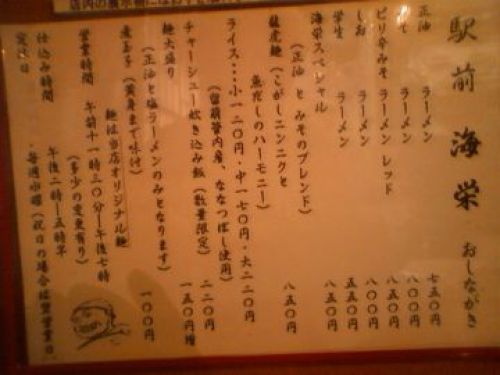 駅前 海栄 おしながき
正油 ラーメン 七五〇円
みそ ラーメン 八〇〇円
ピリ辛みそ ラーメン レッド 八五〇円
しお ラーメン 八〇〇円
学生 ラーメン 五五〇円
海栄スペシャル 八五〇円
(正油 と みそのブレンド)
龍虎麺(こがしニンニクと 八五〇円
魚だしのハーモニー)
ライス・・・小一二〇円・中一七〇円・大二二〇円
(留萌管内産、ななつぼし使用)
チャーシュー炊き込み飯(数量限定) 二二〇円
麺大盛り 一五〇円増
(正油と塩ラーメンのみとなります)
煮玉子(黄身まで味付) 一〇〇円
麺は当店オリジナル麺
営業時間 午前十一時三〇分ー午後七時
(多少の変更有り)
仕込み時間 午後二時ー五時半
定休日 ・毎週水曜(祝日の場合は翌営業日